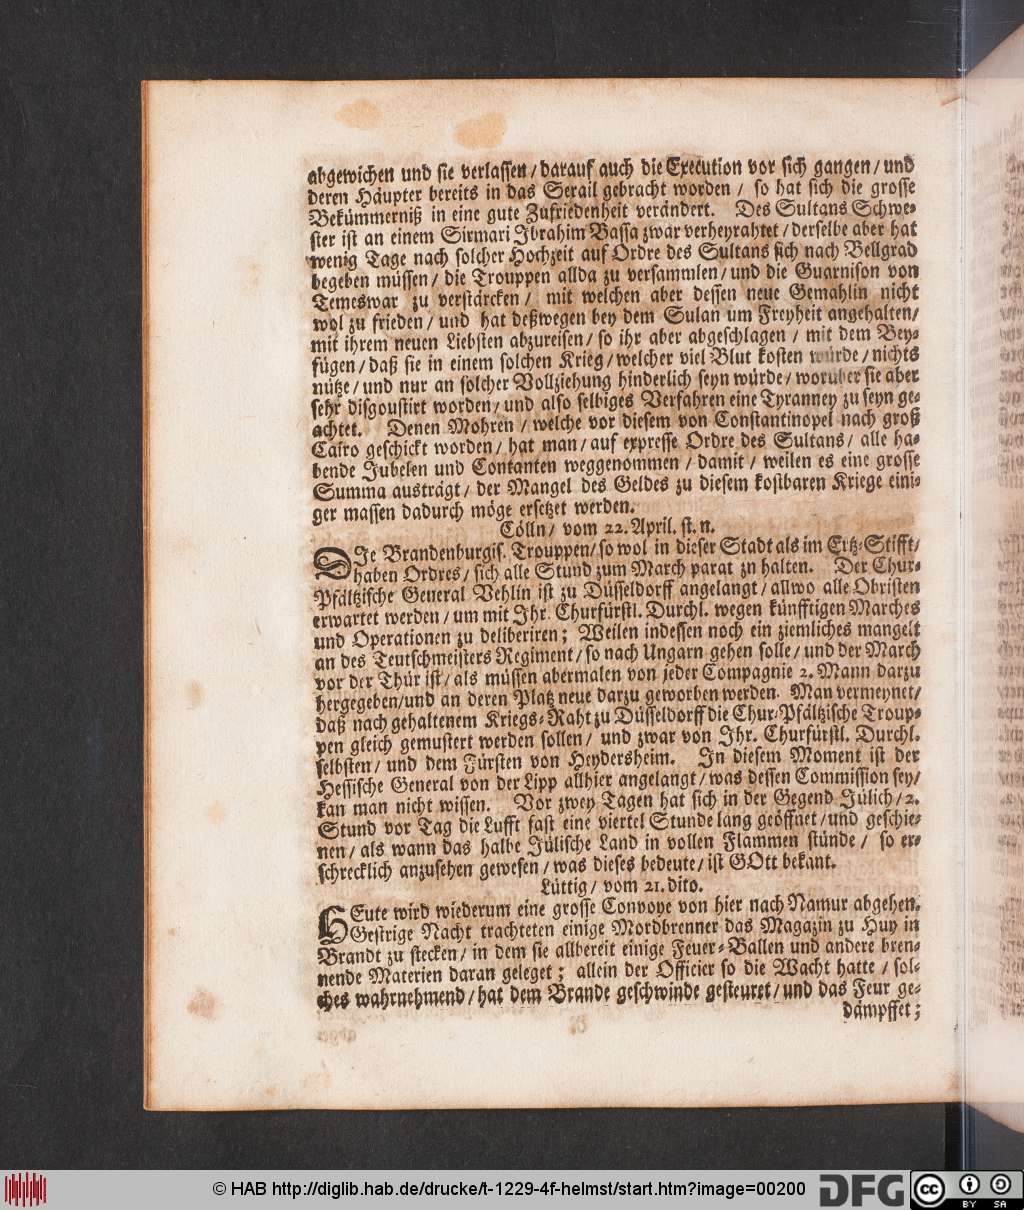 abgewichen und sie verlassen / darauf auch die Execution vor sich gangen / und
deren Häupter bereits in das Serail gebracht worden / so hat sich die grosse
Bekümmerniß in eine gute Zufriedenheit verändert. Des Sultans Schwe-
ster ist an einem Sirmari Ibrahim Bassa zwar verheyrahtet / derselbe aber hat
wenig Tage nach solcher Hochzeit auf Ordre des Sultans sich nach Bellgrad
begeben müssen / die Trouppen allda zu versammlen / und die Guarnison von
Temeswar zu verstärcken / mit welchen aber dessen neue Gemahlin nicht
wol zu frieden / und hat deßwegen bey dem Sulan um Freyheit angehalten /
mit ihrem neuen Liebsten abzureisen / so ihr aber abgeschlagen / mit dem Bey-
fügen / daß sie in einem solchen Krieg / welcher viel Blut kosten würde / nichts
nütze / und nur an solcher Vollziehung hinderlich seyn würde / worüber sie aber
sehr disgoustirt worden / und also selbiges Verfahren eine Tyranney zu seyn ge-
achtet. Denen Mohren / welche vor diesem von Constantinopel nach groß
Cairo geschickt worden / hat man / auf expresse Ordre des Sultans / alle ha-
bende Jubelen und Contanten weggenommen / damit / weilen es eine grosse
Summa austrägt / der Mangel des Geldes zu diesem kostbaren Kriege eini-
ger massen dadurch möge ersetzet werden.
Cölln / vom 22. April. st. n.
DIe Brandenburgis. Trouppen / so wol in dieser Stadt als im Ertz-Stifft /
haben Ordres / sich alle Stund zum March parat zu halten. Der Chur-
Pfältzische General Vehlin ist zu Düsseldorff angelangt / allwo alle Obristen
erwartet werden / um mit Ihr. Churfürstl. Durchl. wegen künfftigen Marches
und Operationen zu deliberiren; Weilen indessen noch ein ziemliches mangelt
an des Teutschmeisters Regiment / so nach Ungarn gehen solle / und der March
vor der Thür ist / als müssen abermalen von jeder Compagnie 2. Mann darzu
hergegeben / und an deren Platz neue darzu geworben werden. Man vermeynet /
daß nach gehaltenem Kriegs-Raht zu Düsseldorff die Chur-Pfältzische Troup-
pen gleich gemustert werden sollen / und zwar von Ihr. Churfürstl. Durchl.
selbsten / und dem Fürsten von Heydersheim. In diesem Moment ist der
Hessische General von der Lipp allhier angelangt / was dessen Commission sey /
kan man nicht wissen. Vor zwey Tagen hat sich in der Gegend Jülich / 2.
Stund vor Tag die Lufft fast eine viertel Stunde lang geöffnet / und geschie-
nen / als wann das halbe Jülische Land in vollen Flammen stünde / so er-
schrecklich anzusehen gewesen / was dieses bedeute / ist GOtt bekant.
Lüttig / vom 21. dito.
HEute wird wiederum eine grosse Convoye von hier nach Namur abgehen.
Gestrige Nacht trachteten einige Mordbrenner das Magazin zu Huy in
Brandt zu stecken / in dem sie allbereit einige Feuer-Ballen und andere bren-
nende Materien daran geleget; allein der Officier so die Wacht hatte / sol-
ches wahrnehmend / hat dem Brande geschwinde gesteuret / und das Feur ge-
dämpffet;
© HAB http://diglib.hab.de/drucke/t-1229-4f-helmst/start.htm?image=00200
DFG
cc BY SA